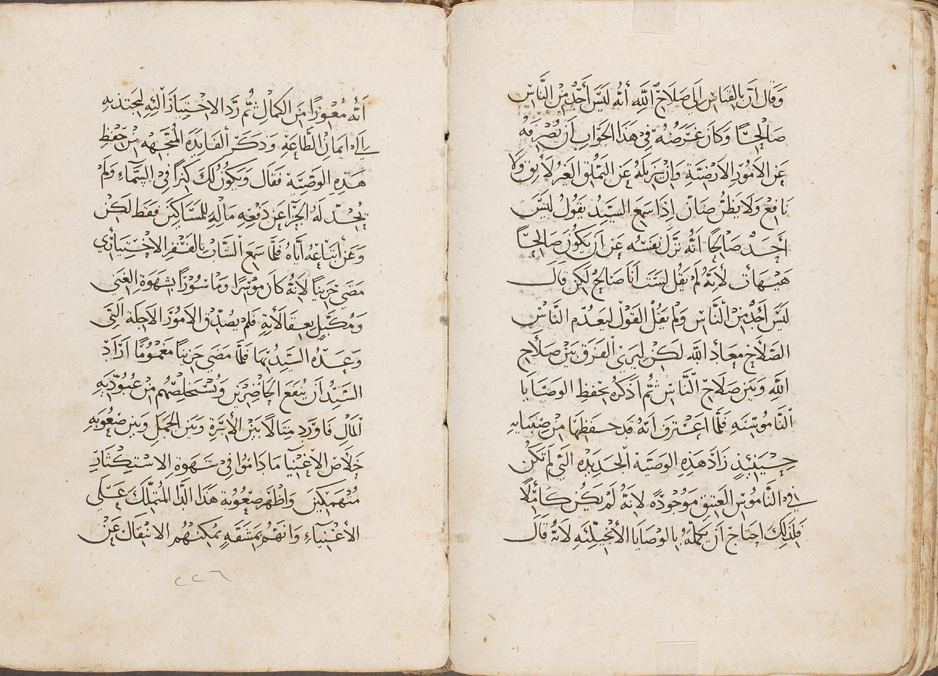 وقال ان بالقياس الى صلاح الله انه ليس أحد من الناس
صالحًا وكان غرضه في هذا الجواب ان يصرفه
عن الامور الارضيه وان يزيله عن التملق الغير لايق ولا
نافع ولا يظن ظان اذا سمع السيد يقول ليس
أحد صالحًا انه نزل نفسه عن ان يكون صالحًا
هيهات لأنه لم يقل لست أنا صالح لكن قال
ليس أحد من الناس ولم يقل القول ليعدم الناس
الصلاح معاذ الله لكن ليري الفرق بين صلاح
الله وبين صلاح الناس ثم اذكره بحفظ الوصايا
الناموسيه فلما اعترف انه قد حفظها من صباه
حينيذٍ زاد هذه الوصية الجديده التي لم تكن
في الناموس العتيق موجودة لانه لم يكن كاملًا
فلذلك احتاج أن يكمله بالوصايا الانجيليه لانه قال
أنه معوزًا من الكمال ثم رد الاختيار اليه ليجتذبه
الى ايمان الطاعه وذكر الفايده المتجهه من حفظ
هذه الوصيه فقال ويكون لك كنزا في السماء ولم
يحد له الجزا عن دفعه ماله للمساكين فقط لكن
وعن اتباعه اياه فلما سمع الشاب بالفقر الاختياري
مضى حزينًا لانه كان موسرا وماسورًا بشهوة الغنى
ومكبل بعقالاته فلم يصدق الامور الاجله التي
وعده السيد بها فلما مضى حزينًا مغمومًا اراد
السيد أن ينفع الحاضرين ويستخلصهم من عبودية
المال فاورد مثالًا بين الأبره وبين الجمل وبين صعوبه
خلاص الاغنيا ما داموا في شهوة الاستكثار
منهمكين واظهر صعوبة هذا الدا المتملك على
الأغنياء وانهم بمشقه يمكنهم الانتقال عن
٢٢٦